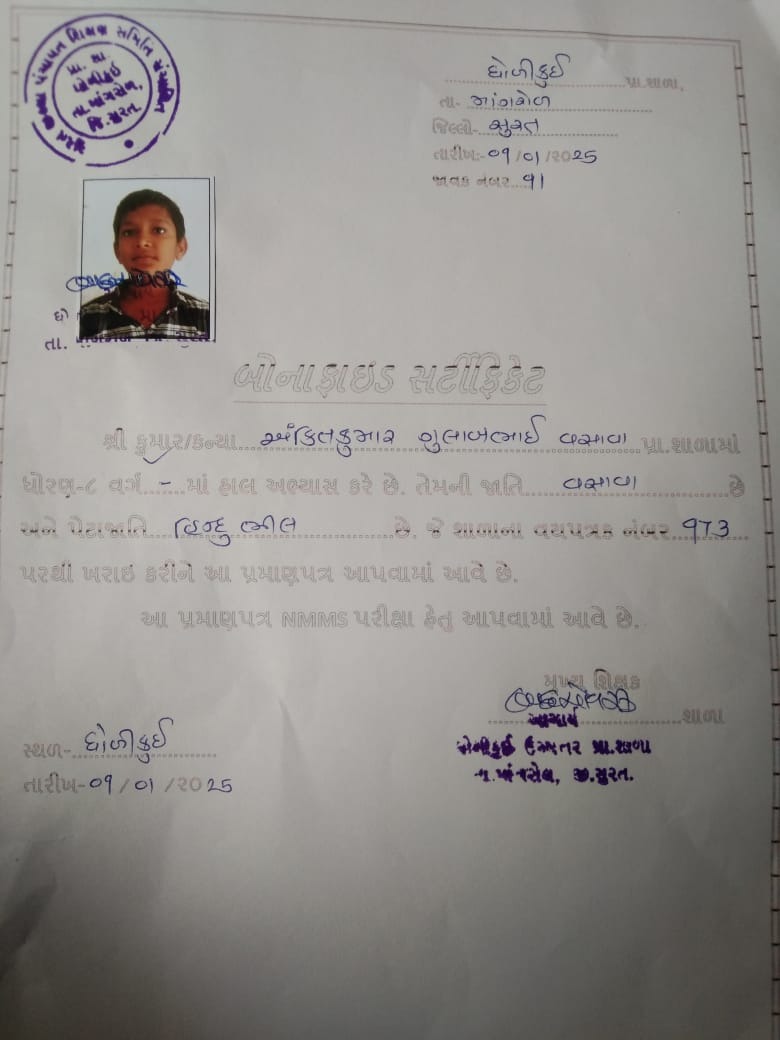 જિલ્લા પંચાયત શિક્ષણ સમિતિ સંચાલિત
પ્રા. શા.
ધોળીકુઈ
તા. માંગરોળ,
જિ. સુરત.
ધોળીકુઈ પ્રા.શાળા,
તા- માંગરોળ
જિલ્લો- સુરત
તારીખ:- ૦૧/૦૧/૨૦25
જાવક નંબર.... ૧૧
તા.
બોનાફાઇડ સર્ટીફિકેટ
શ્રી કુમાર/કન્યા અંકિતકુમાર ગુલાબભાઈ વસાવા પ્રા.શાળામાં
ધોરણ-૮ વર્ગ.....-...માં હાલ અભ્યાસ કરે છે. તેમની જાતિ વસાવા છે
અને પેટાજાતિ હિન્દુ ભીલ છે. જે શાળાના વયપત્રક નંબર ૧૭૩
પરથી ખરાઇ કરીને આ પ્રમાણપત્ર આપવામાં આવે છે.
આ પ્રમાણપત્ર NMMS પરીક્ષા હેતુ આપવામાં આવે છે.
મુખ્ય શિક્ષક
આચાર્ય શાળા
ધોળીકુઈ ઉચ્ચતર પ્રા.શાળા
તા.માંગરોલ, જી.સુરત.
સ્થળ- ધોળીકુઈ
તારીખ- ૦૧/૦૧/૨૦25